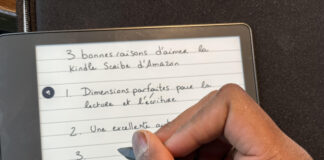 3 bonnes raisons d'aimer la
Kindle Scribe d'Amazon
1. Dimensions parfaites pour la
lecture et l'écriture
2. Une excellente
3